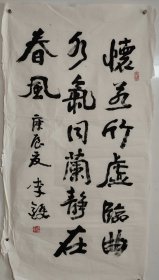 懷若竹虛臨曲
水氣同蘭靜在
春風
庚辰夏 李鐸